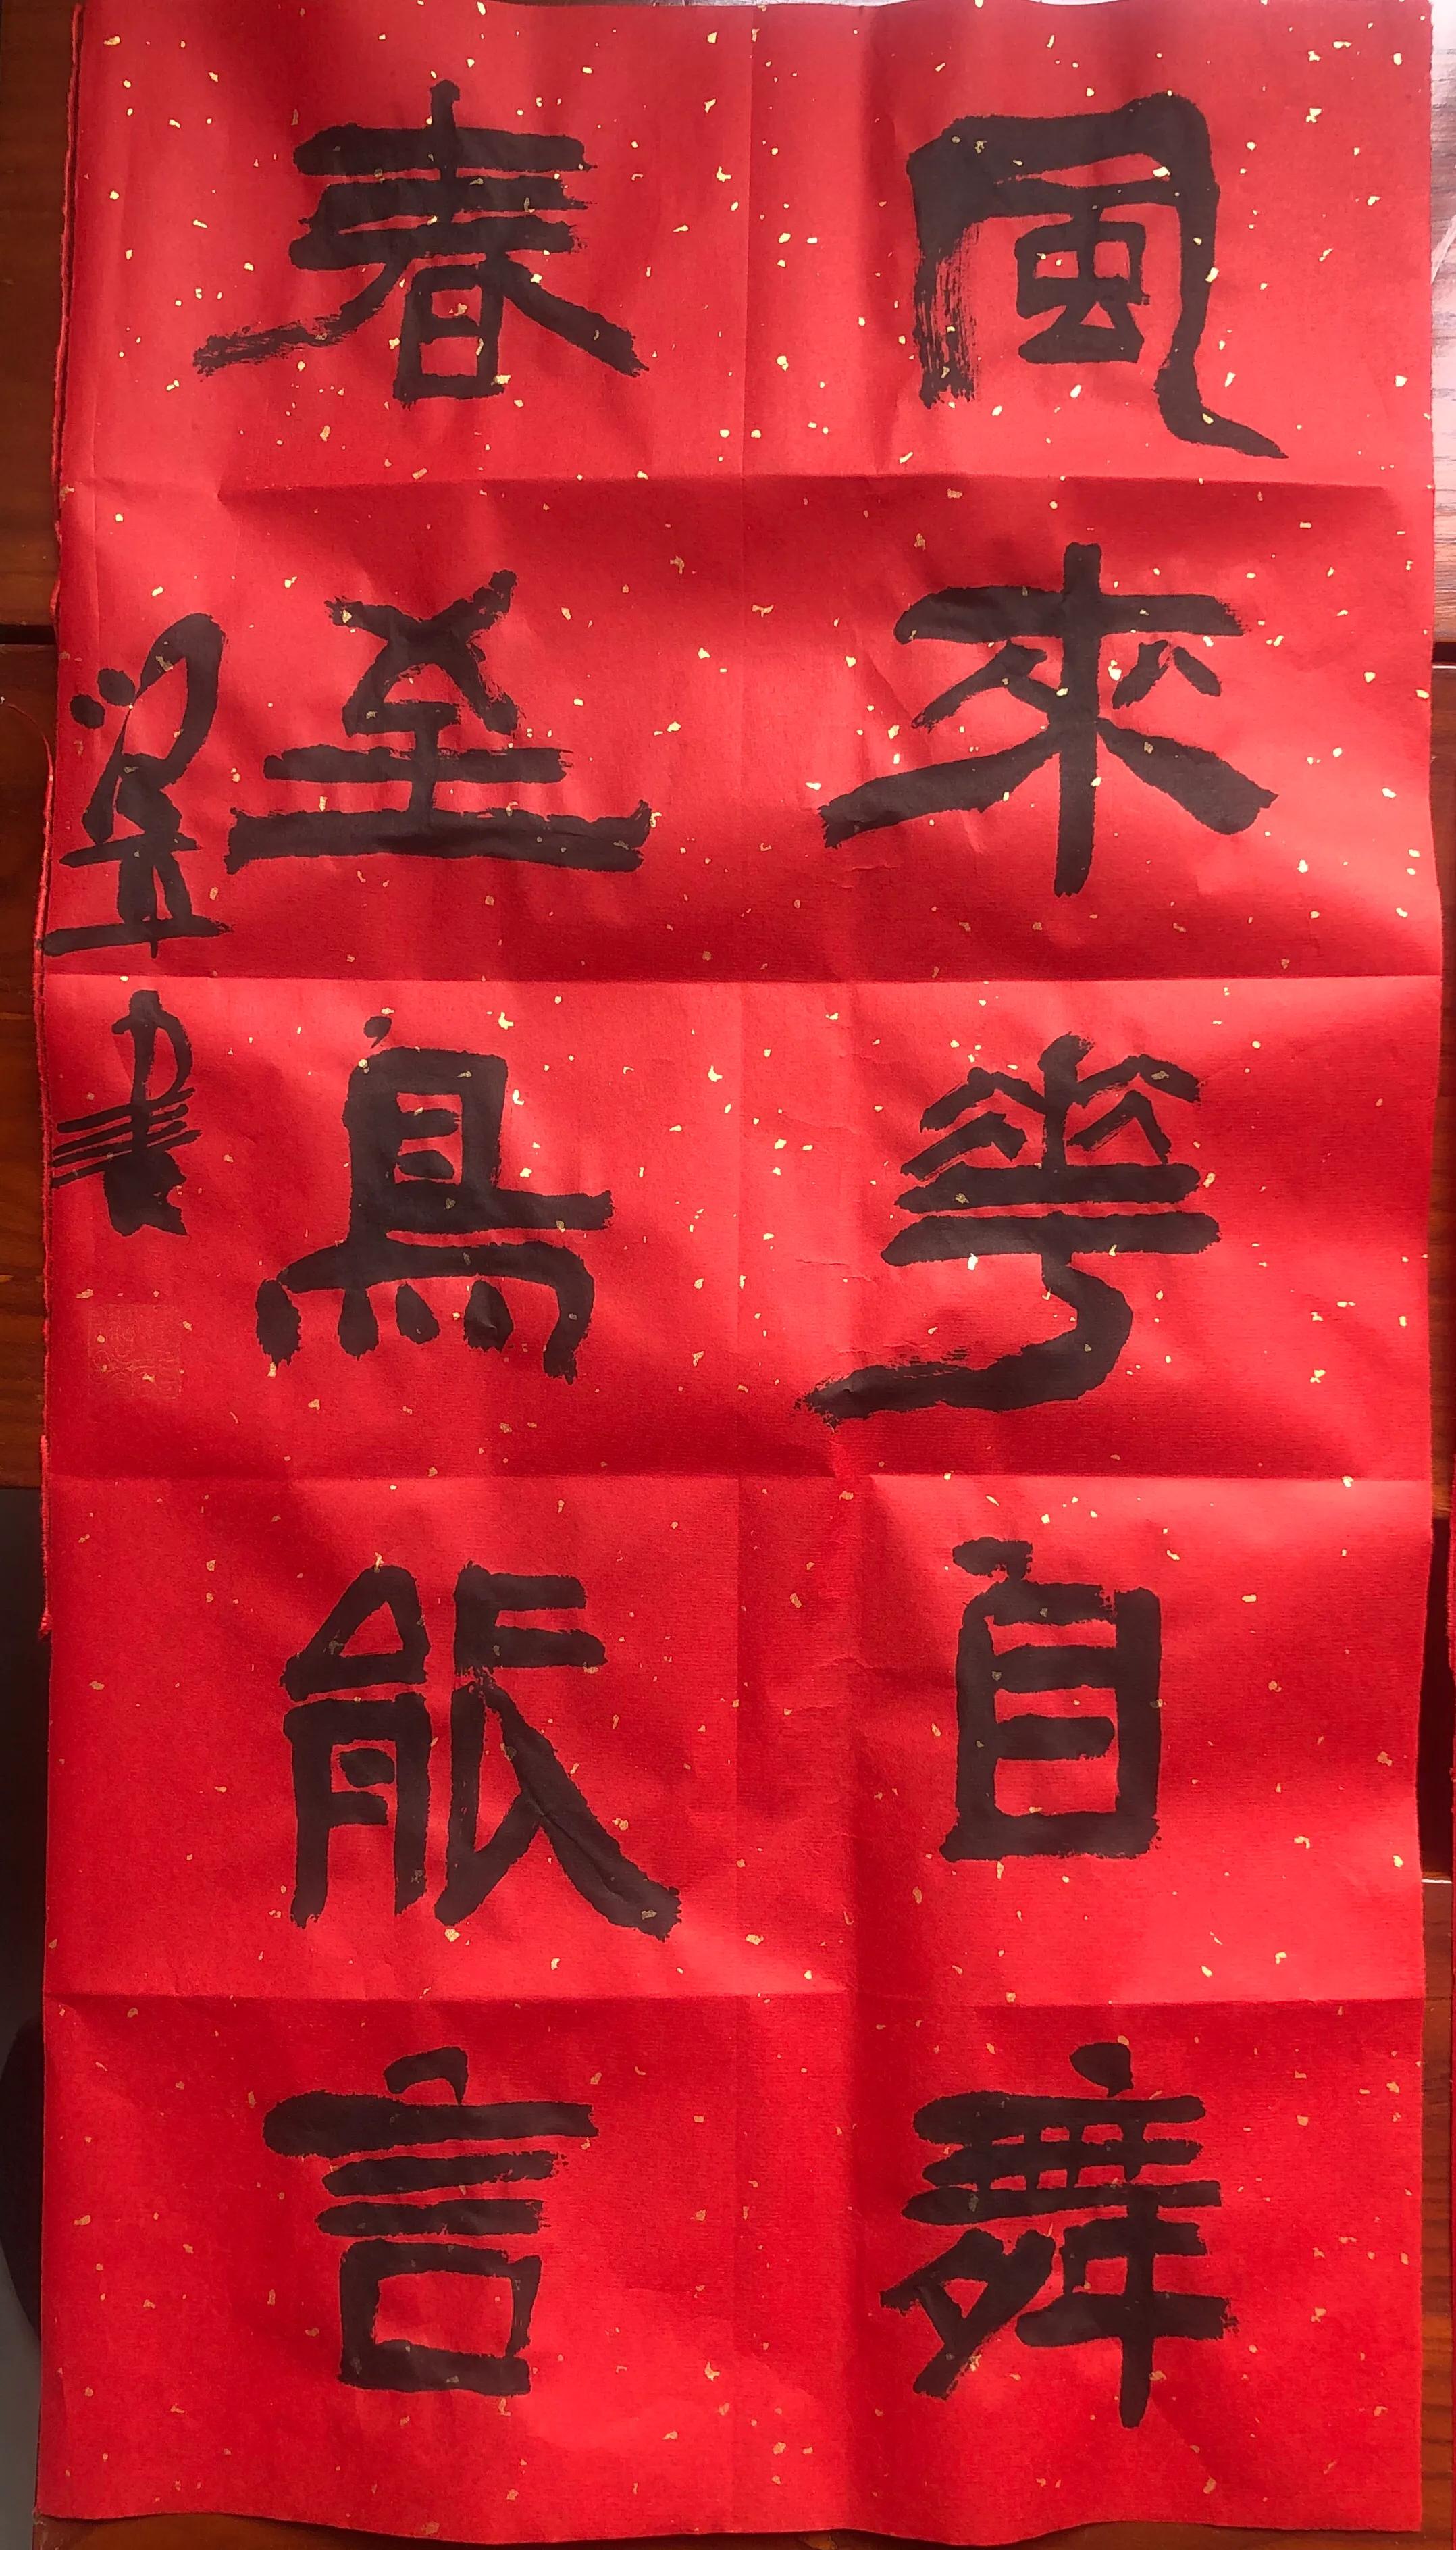 風來華自舞
春至鳥能言
書